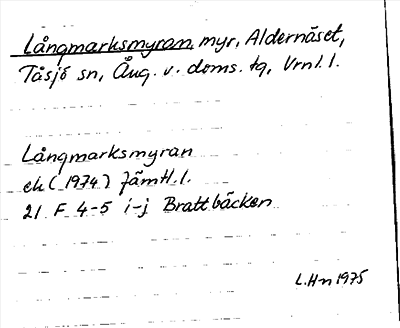 Långmarksmyran, myr, Aldernäset,
Tåsjö sn, Ång. v. doms. tg, Vrnl. l.
Långmarksmyran
ek (1974) Jämtl. l.
21 F 4-5 i-j Brattbäcken
L. Hn 1975